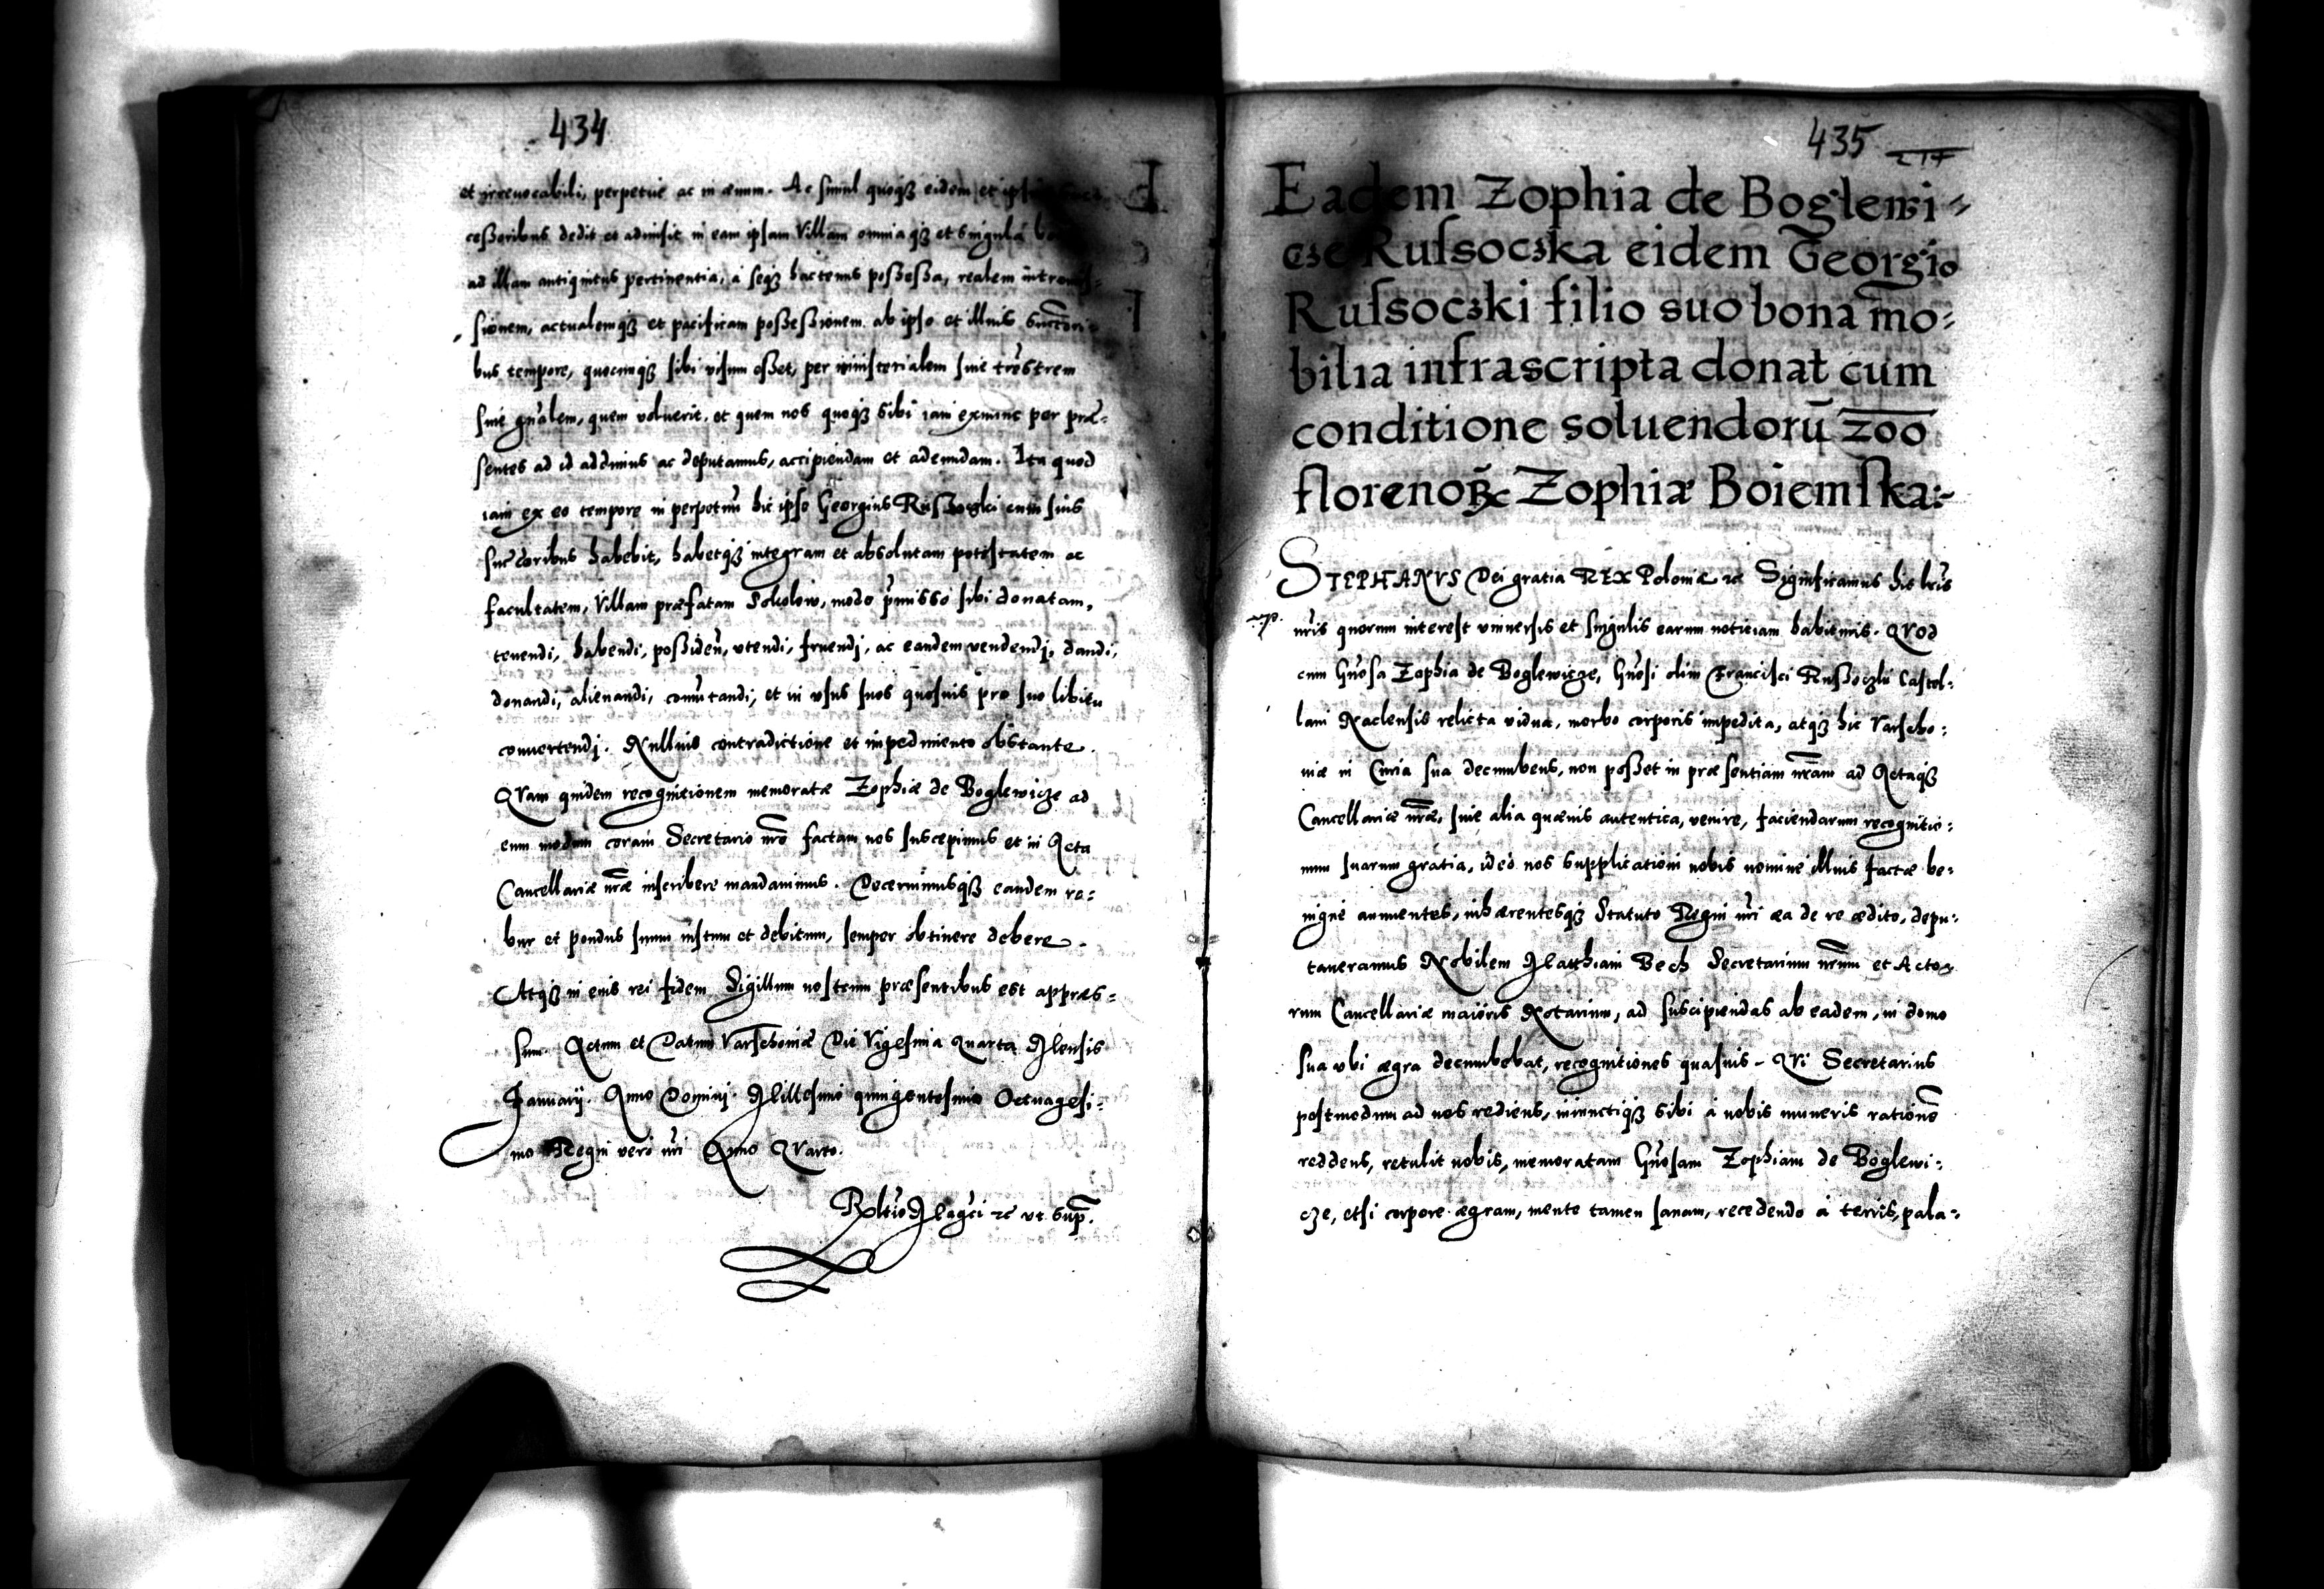 434
et irrevocabili, perpetue ac in ævum. Ac simul quoqꝫ eidem et ipsius
cessoribus dedit et admisit in eam ipsam Villam omnia qꝫ et singula
ad illam antiquitus pertinentia, a seqꝫ hactenus possessa, realem intromis=
sionem, actualemqꝫ et pacificam possessionem ab ipso et illius succori
bus tempore, quocunqꝫ sibi visum esset, per ministerialem sive trestrem
sive gnalem, quem voluerit, et quem nos quoqꝫ sibi iam exnunc per præ=
sentes ad id addimus ac deputamus, accipiendam et adeundam. Ita quod
iam ex eo tempore in perpetuũ hic ipse Georgius Russoczki cum suis
succoribus habebit, habetqꝫ integram et absolutam potestatem ac
facultatem, Villam præfatam Sokolow, modo pmisso sibi donatam,
tenendi, habendi, possideñ, utendi, fruendj, ac eandem vendendj, dandi,
donandi, alienandi, comutandi, et in usus suos quosvis pro suo libitu
convertendj. Nullius contradictione et impedimento obstante.
QVam quidem recognitionem memoratæ Zophiæ de Boglewicze ad
eum modum coram Secretario nro factam nos suscepimus et in Acta
Cancellariæ nræ inscribere mandavimus. Decernimusqꝫ eandem ro=
bur et pondus suum iustum et debitum, semper obtinere debere.
Atqꝫ in eius rei fidem Sigillum nostrum præsentibus est appres=
sum. Actum et Datum Varschoviæ Die Vigesima Quarta Mensis
Januarij. Anno Dominj. Millesimo quingentesimo Octuagesi=
mo Regni vero nri Anno QVarto.
Reltio Magci ꝛc ut sup.
435
Eadem Zophia de Boglewi=
cze Russoczka eidem Georgio
Russoczki filio suo bona mo=
bilia infrascripta donat cum
conditione soluendorũ 200
florenorꝫ Zophiæ Boiemska:-
STEPHANVS Dei gratia REX Poloniæ ꝛc Significamus his lris
nris quorum interest universis et singulis earum notitiam habituris. QVod
cum Gnosa Zophia de Boglewicze, Gnosi olim Francisci Russoczki Castel=
lani Naclensis relicta vidua, morbo corporis impedita, atqꝫ hic Varscho=
viæ in Curia sua decumbens, non posset in præsentiam nram ad Actaqꝫ
Cancellariæ nræ, sive alia quævis autentica, venire, faciendarum recognitio=
num suarum gratia, ideo nos supplicationi nobis nomine illius factæ be=
nigne annuentes, inhærentesqꝫ Statuto Regni nri ea de re ædito, depu=
taveramus Nobilem Matthiam Bech Secretarium nrum et Acto
rum Cancellariæ maioris Notarium, ad suscipiendas ab eadem, in domo
sua ubi ægra decumbebat, recognitiones quasvis. QVi Secretarius
postmodum ad nos rediens, iniunctiqꝫ sibi à nobis muneris ratione
reddens, retulit nobis, memoratam Gnosam Zophiam de Boglewi=
cze, etsi corpore ægram, mente tamen sanam, recedendo à terris, pala=